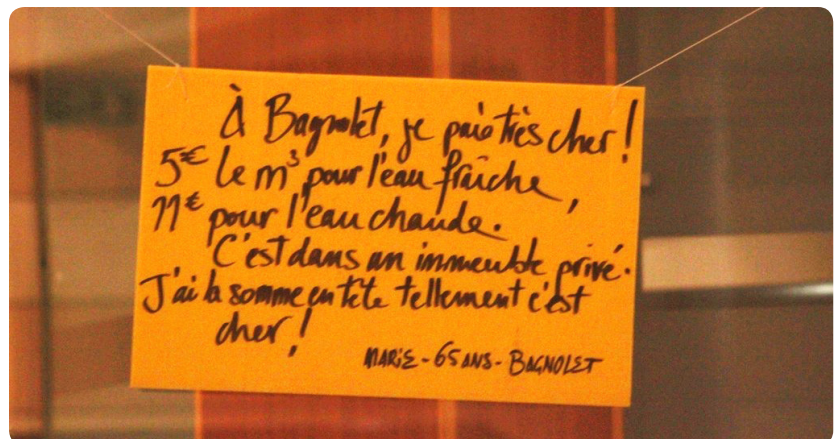 À Bagnolet, je paie très cher !
5€ le m³ pour l'eau fraîche,
11€ pour l'eau chaude.
C'est dans un immeuble privé.
J'ai la somme en tête tellement c'est
cher !
MARIE - 65 ANS - BAGNOLET